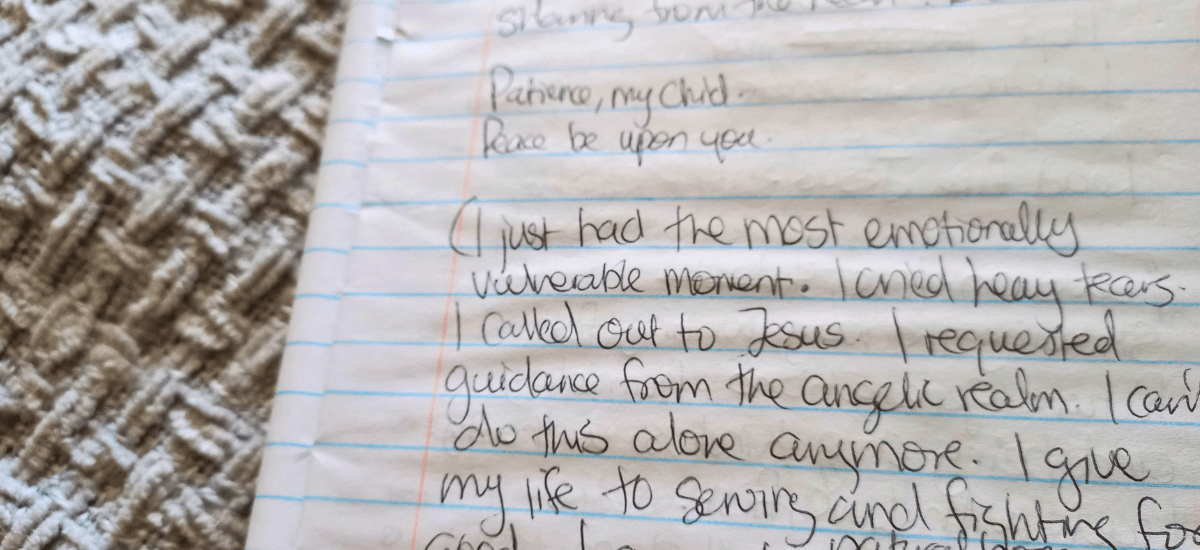 from the
Patience, my Child.
Peace be upon you.
(I just had the most emotionally
vulnerable moment. I cried heavy tears.
I called out to Jesus. I requested
guidance from the angelic realm. I can't
do this alone anymore. I give
my life to serving and fighting for